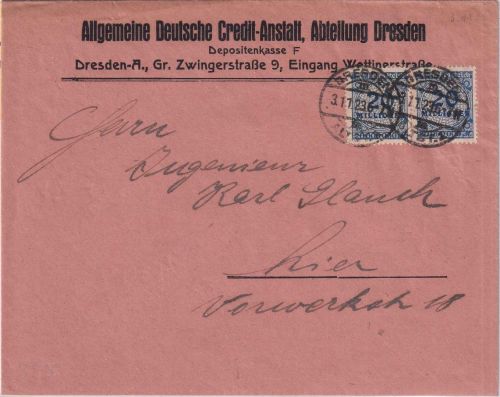 Allgemeine Deutsche Credit-Anstalt, Abteilung Dresden
Depositenkasse F
Dresden-A., Gr. Zwingerstraße 9, Eingang Wettinerstraße
DRESDEN
3.11.23
20
MILLIONEN
DRESDEN
11.23
20
MILLIONEN
Herrn
Ingenieur
Karl Glauch
hier
Vorwerkstr 18